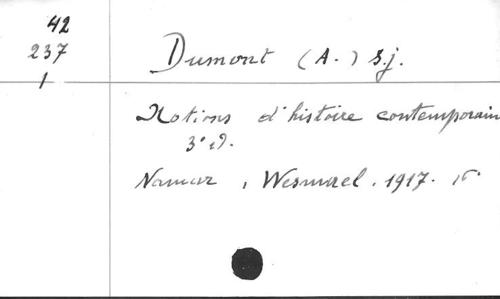 42
237
1
Dumont (A.) s.j.
Notions d'histoire contemporain
3e éd.
Namur, Wesmael. 1917.